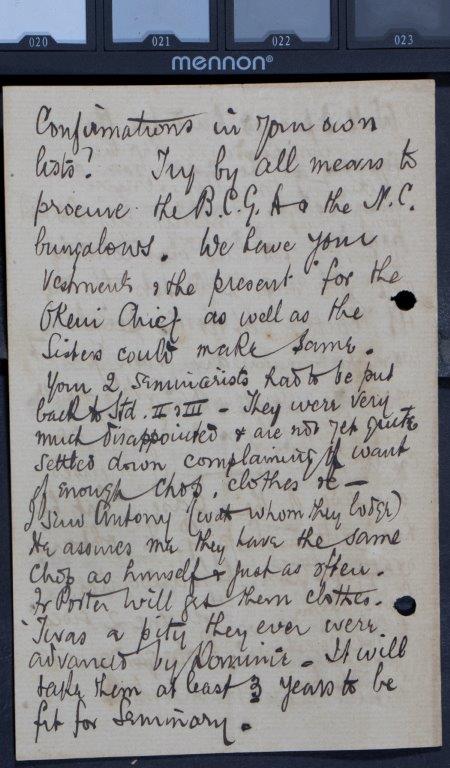 020 021 022 023
mennon®
Confirmations in your own
lists? Try by all means to
procure the B.C.G. H & the N.C.
bungalows. We have your
Vestments & the present for the
Okeni Chief as well as the
Sisters could make same.
Your 2 seminarists had to be put
back to Std. II & III – They were very
much disappointed & are not yet quite
settled down complaining of want
of enough chop, clothes &c –
I saw Antony (with whom they lodge)
He assures me they have the same
Chop as himself & just as often.
Fr Porter will get them clothes.
'Twas a pity they ever were
advanced by Dominic – It will
take them at least 3 years to be
fit for Seminary.